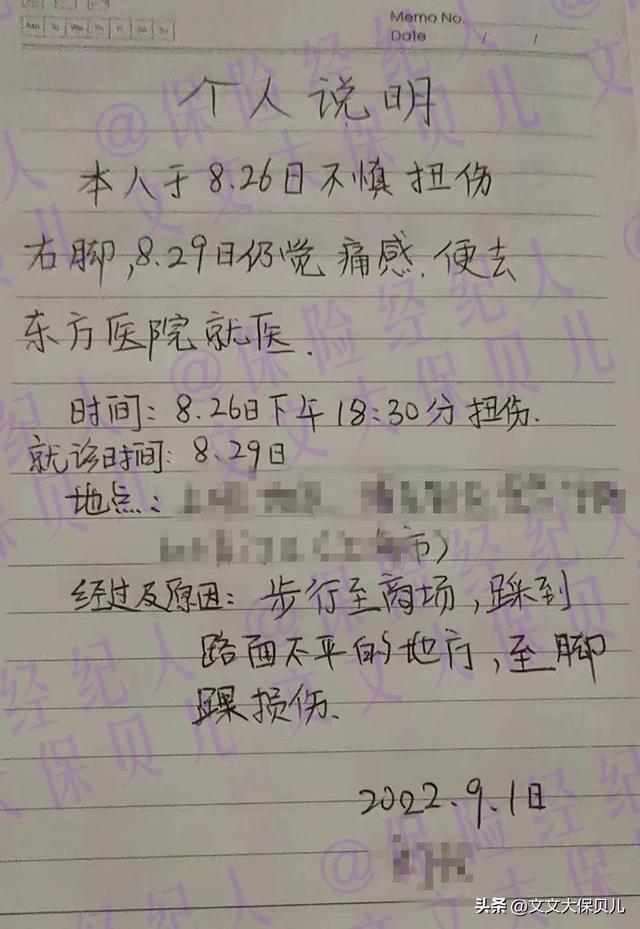 Memo No.
Mo Tu We Th Fr Sa Su
Date / /
个人说明
本人于8.26日不慎扭伤
右脚,8.29日仍觉痛感.便去
东方医院就医.
时间:8.26日下午18:30分扭伤.
就诊时间:8.29日
地点:
市)
经过及原因:步行至商场,踩到
路面不平的地方,至脚
踝损伤.
2022.9.1日
@保险经纪人
文文大保贝儿
头条@文文大保贝儿